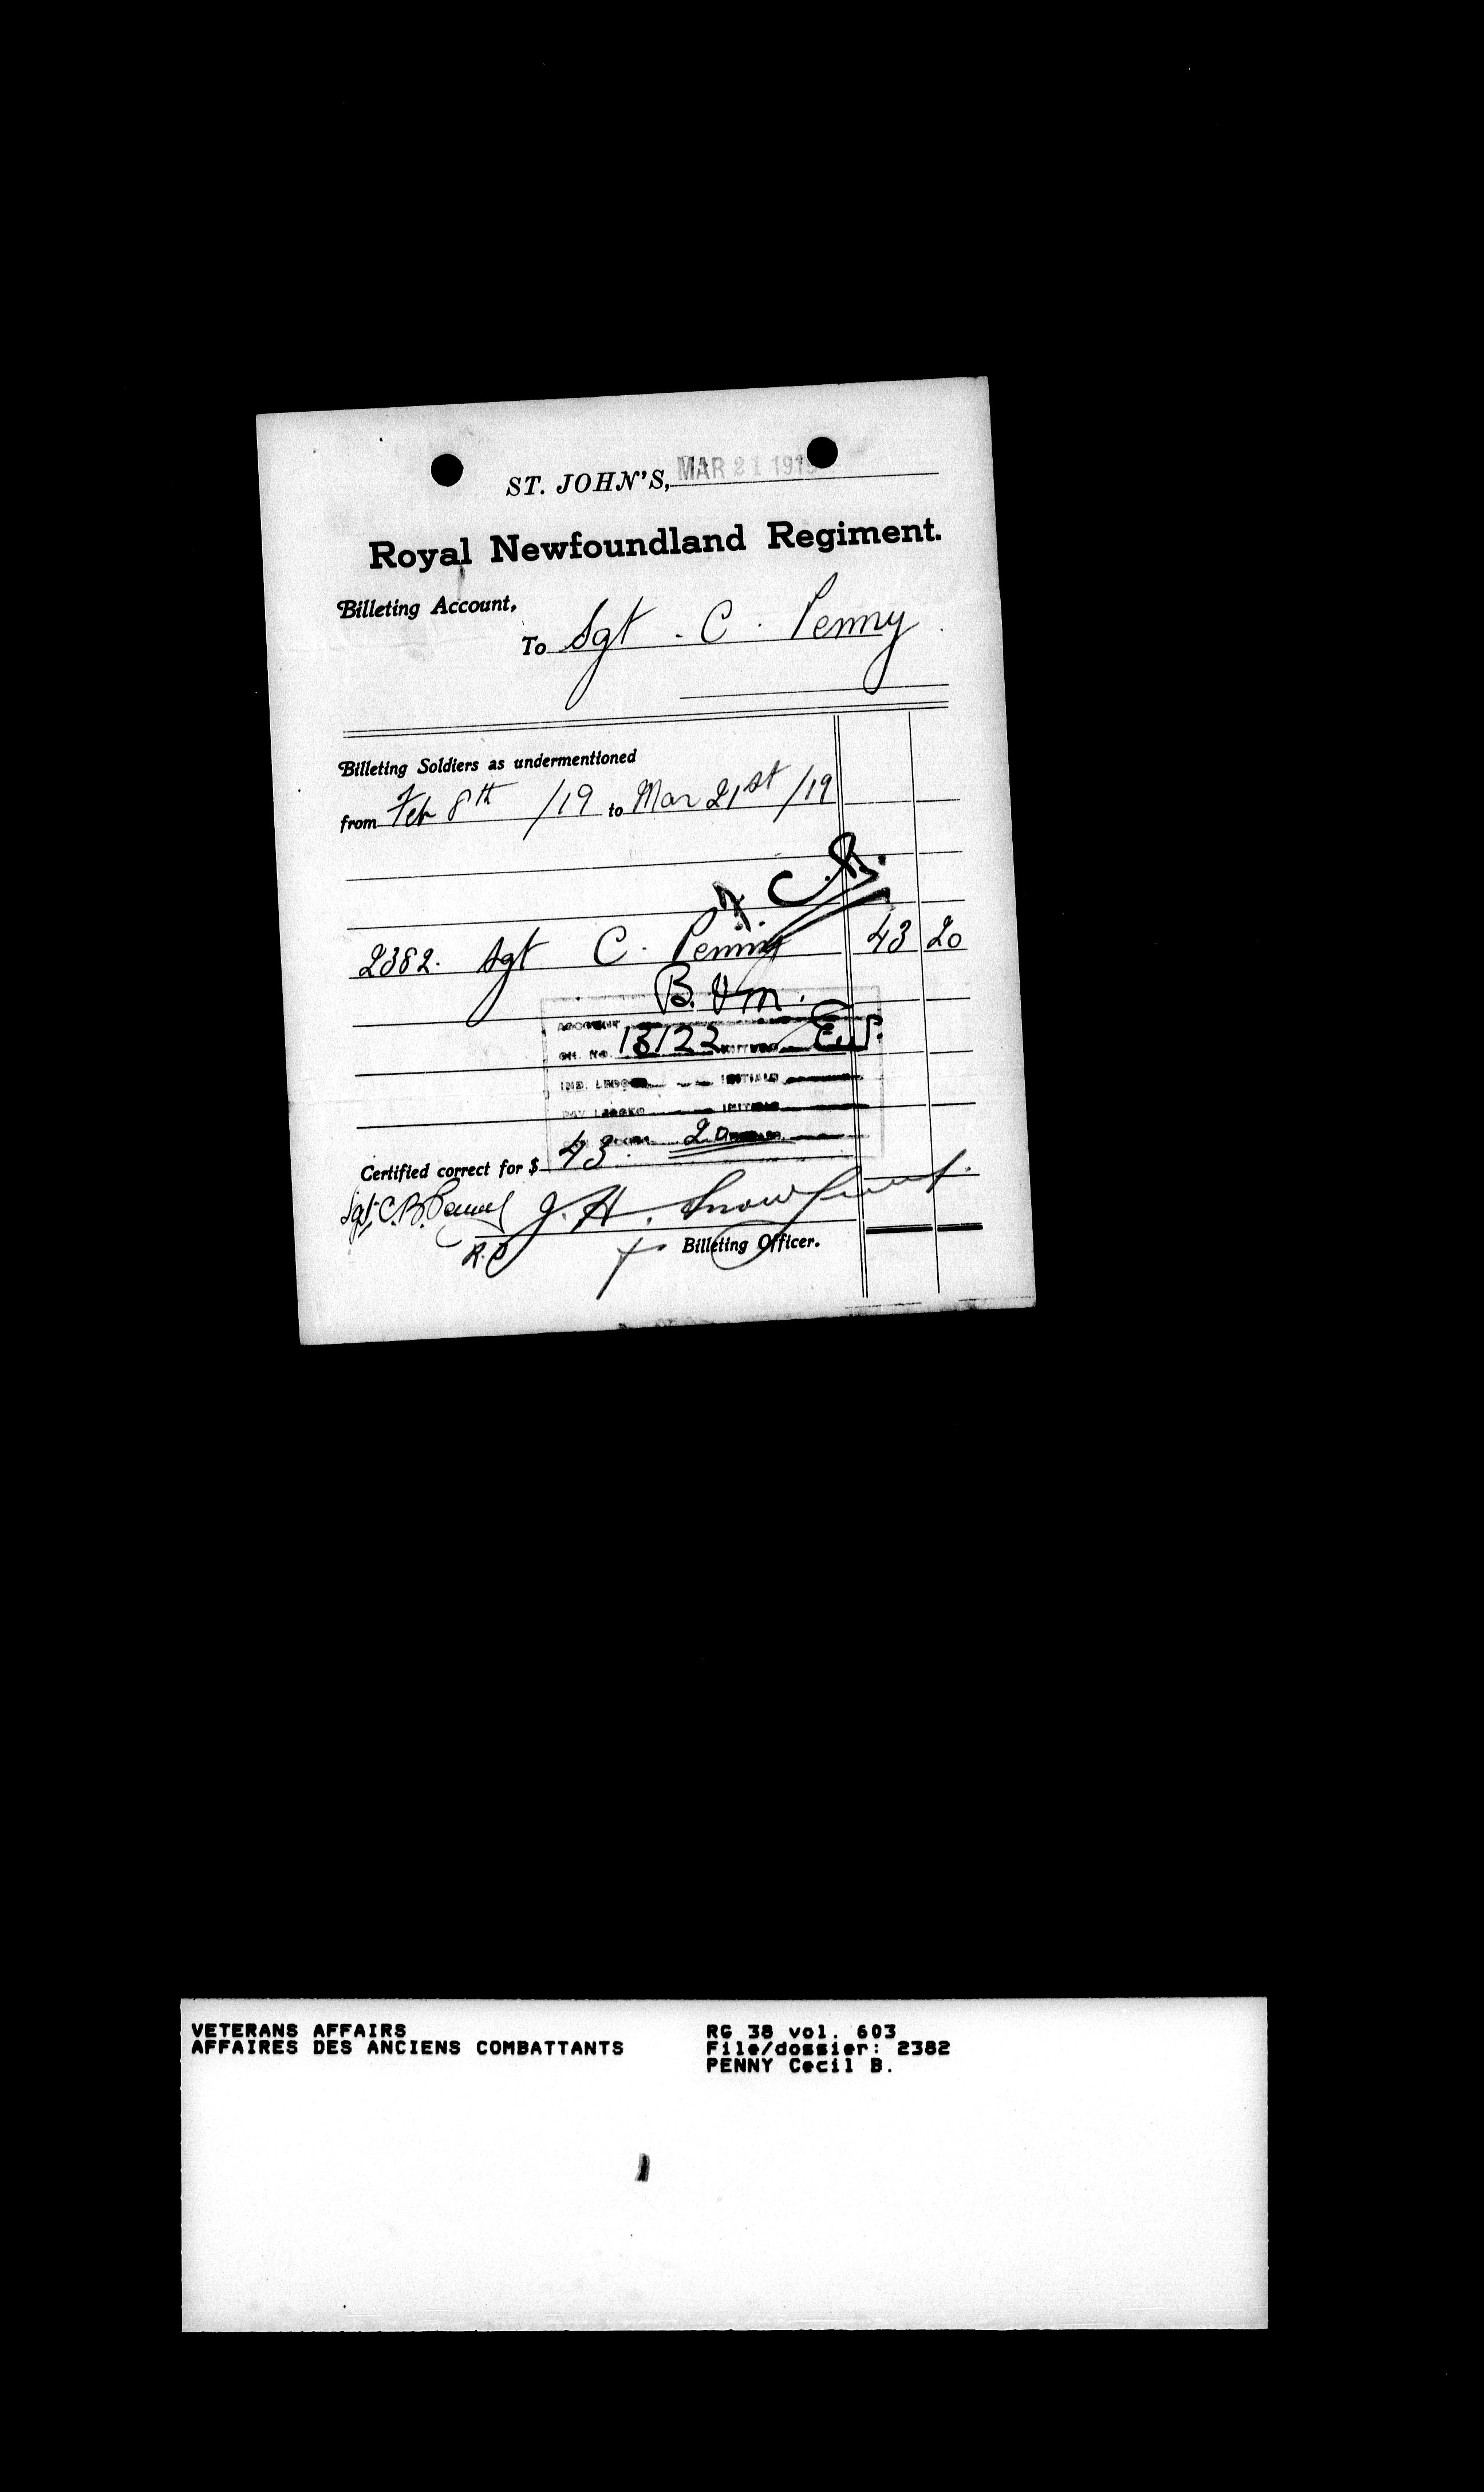 ST. JOHN'S, MAR 21 1919
Royal Newfoundland Regiment.
Billeting Account,
To Sgt. C. Penny
Billeting Soldiers as undermentioned
from Feb 8th /19 to Mar 21st /19
2382. Sgt C. Penny 43 20
ACCOUNT
CH. NO. 13122
IND. LEDGER INITIALS
PAY LEDGER INITIALS
Certified correct for $ 43. 20
Sgt. C. B. Penny J. H. Snow
Billeting Officer.
VETERANS AFFAIRS
AFFAIRES DES ANCIENS COMBATTANTS
RG 38 vol. 603
File/dossier: 2382
PENNY Cecil B.